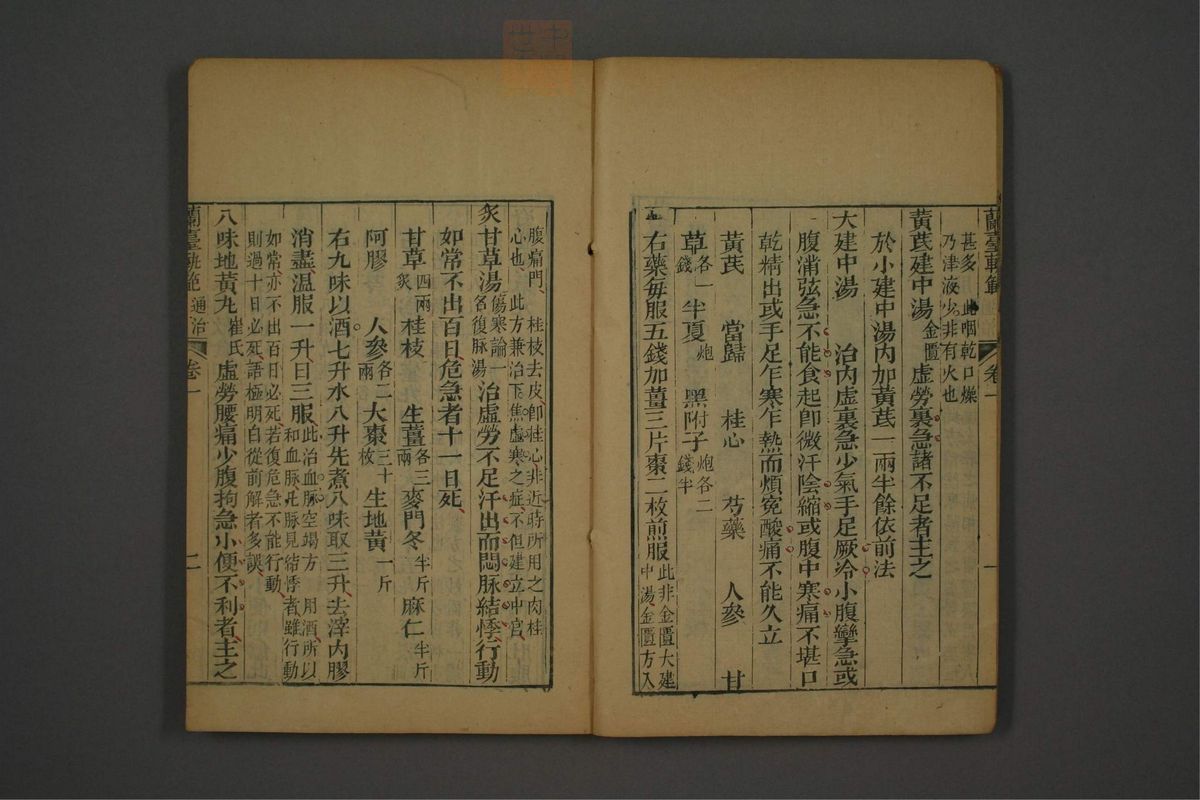 蘭臺軌範
卷一
一
甚多此咽乾口燥
乃津液少非有火也
黃芪建中湯金匱 虛勞裏急諸不足者主之
於小建中湯內加黃芪一兩半餘依前法
大建中湯 治內虛裏急少氣手足厥冷小腹攣急或
腹滿弦急不能食起卽微汗陰縮或腹中寒痛不堪口
乾精出或手足乍寒乍熱而煩冤酸痛不能久立
黃芪 當歸 桂心 芍藥 人參 甘
草各一錢 半夏炮 黑附子炮各二錢半
右藥每服五錢加薑三片棗二枚煎服此非金匱大建
中湯金匱方入
腹痛門 桂枝去皮卽桂心非近時所用之肉桂
心也 此方兼治下焦虛寒之症不但建立中宮
炙甘草湯傷寒論一名復脉湯 治虛勞不足汗出而悶脉結悸行動
如常不出百日危急者十一日死
甘草四兩炙 桂枝 生薑各三兩 麥門冬半斤 麻仁半斤
阿膠 人參各二兩 大棗三十枚 生地黃一斤
右九味以酒七升水八升先煮八味取三升去滓內膠
消盡溫服一升日三服此治血脉空竭方 用酒所以
和血脉凡脉見結悸者雖行動
如常亦不出百日必死若復危急不能行動
則過十日必死語極明白從前解者多誤
八味地黃丸崔氏 虛勞腰痛少腹拘急小便不利者主之
蘭臺軌範
通治
卷一
二